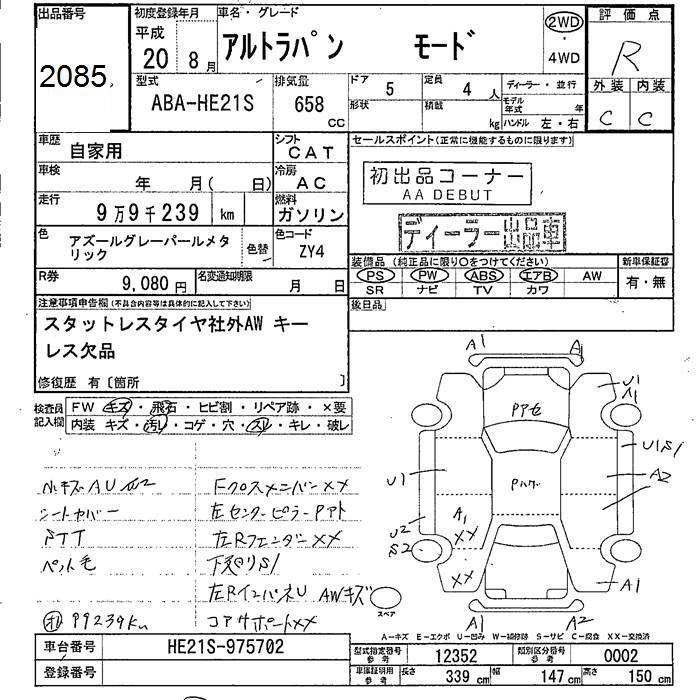 出品番号 初度登録年月 車名・グレード 評価点
2085 平成 20年 8月 アルトラパン モード 2WD・4WD R
型式 排気量 ドア 定員 ディーラー・並行 外装 内装
ABA-HE21S 658 CC 5 4人 C C
形状 積載 kg モデル年式 年 ハンドル 左・右
車歴 自家用 シフト CAT セールスポイント(正常に機能するものに限ります)
車検 年 月(日) 冷房 AC 初出品コーナー
AA DEBUT
走行 9万9千239 km 燃料 ガソリン ディーラー出品車
色 アズールグレーパールメタリック 色替 色コード ZY4
装備品(純正品に限り○をつけてください) 新車保証書
R券 9,080円 名変通知期限 月 日 PS PW ABS エアB AW 有・無
SR ナビ TV カワ
注意事項申告欄(不具合内容等は具体的に記入して下さい) 後日品
スタットレスタイヤ社外AW キー
レス欠品
修復歴 有〔箇所 〕
検査員記入欄 FW キズ・飛石・ヒビ割・リペア跡・×要
内装 キズ・汚れ・コゲ・穴・スレ・キレ・破レ
A1 A
U1 A1
Pアセ
U1S1
U1 A2
A1
XX
U2
S2
XX A1
A1 A2
FクロスメンバーXX
シートカバー 左センターピラーPアト
左RフェンダーXX
ペット毛 下廻りS1
左RインパネU AWキズ
99239km コアサポートXX
スペア
A―キズ E―エクボ U―凹み W―補修跡 S―サビ C―腐食 XX―交換済
車台番号 HE21S-975702 型式指定番号 参考 12352 類別区分番号 参考 0002
登録番号 車庫証明用 参考 長さ 339 cm 幅 147 cm 高さ 150 cm